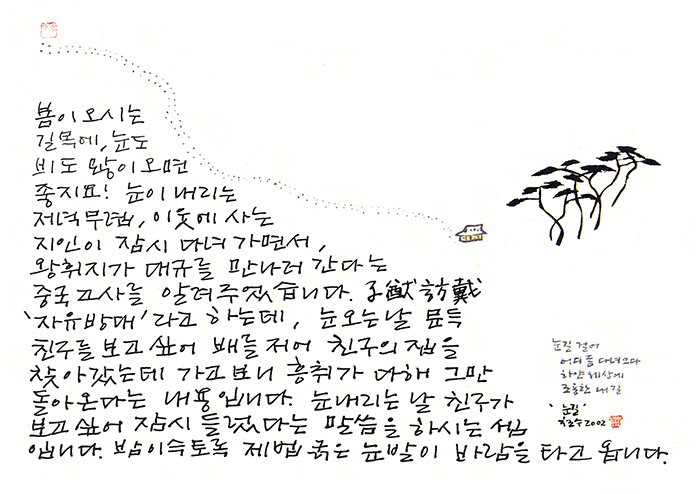 봄이 오시는
길목에, 눈도
비도 많이 오면
좋지요! 눈이 내리는
저녁 무렵, 이웃에 사는
지인이 잠시 다녀 가면서,
왕휘지가 대규를 만나러 간다는
중국고사를 알려주었습니다. 子猷訪戴
'자유방대'라고 하는데, 눈오는날 문득
친구를 보고 싶어 배를 저어 친구의 집을
찾아갔는데 가고 보니 흥취가 다해 그만
돌아온다는 내용입니다. 눈내리는 날 친구가
보고 싶어 잠시 들렀다는 말씀을 하시는 셈
입니다. 밤이슥토록 제법 굵은 눈발이 바람을 타고 옵니다.
눈길 걸어
어디를 다녀오다
하얀 세상에
조용한 내 길
'눈길'
2002